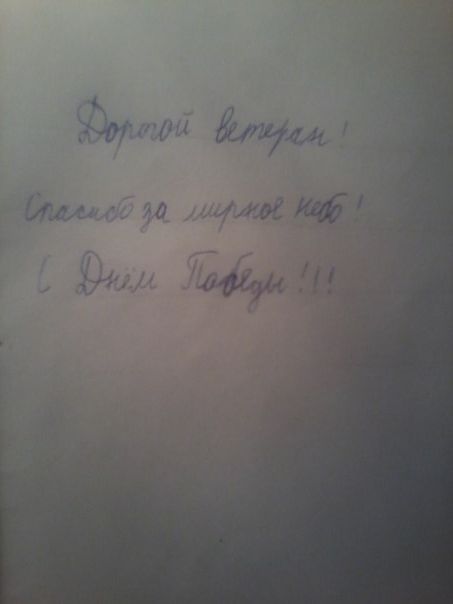 Дорогой ветеран!
Спасибо за мирное небо!
С Днём Победы!!!